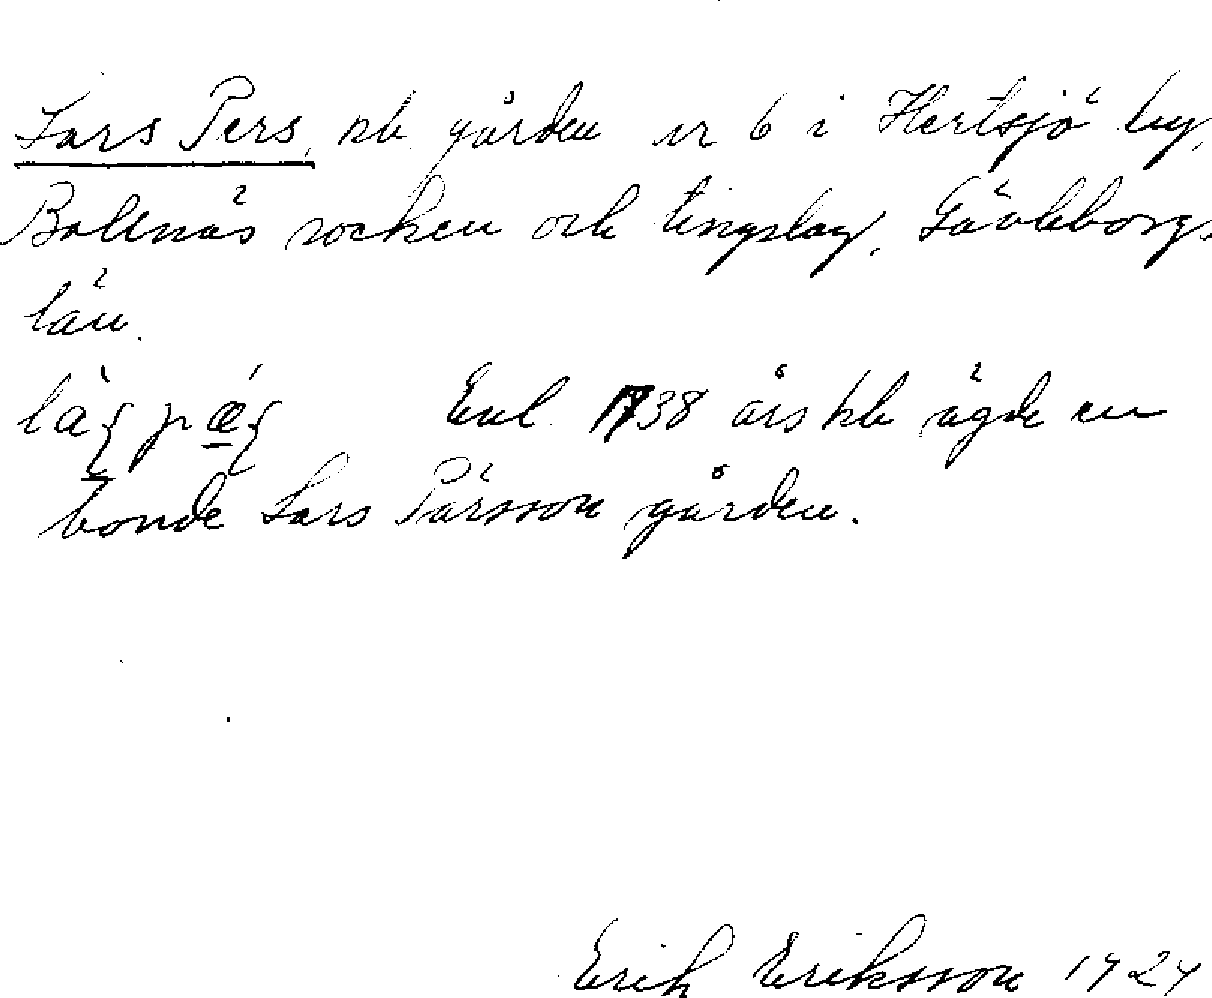 Lars Pers, nb. gården nr 6 i Hertsjö by,
Bollnäs socken och tingslag, Gävleborgs
län.
Enl. 1738 års hb ägde en
bonde Lars Pärsson gården.
Erik Eriksson 1924